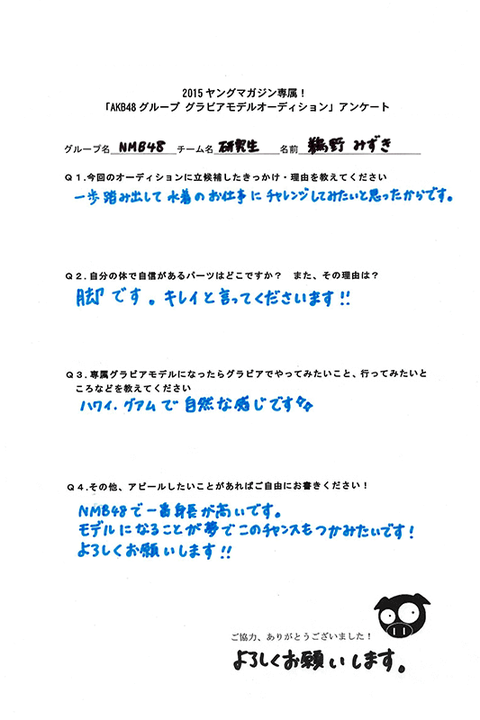 2015 ヤングマガジン専属！
「AKB48 グループ グラビアモデルオーディション」アンケート
グループ名 NMB48 チーム名 研究生 名前 鵜野 みずき
Q1.今回のオーディションに立候補したきっかけ・理由を教えてください
一歩踏み出して水着のお仕事にチャレンジしてみたいと思ったからです。
Q2.自分の体で自信があるパーツはどこですか？ また、その理由は？
脚です。キレイと言ってくださいます!!
Q3.専属グラビアモデルになったらグラビアでやってみたいこと、行ってみたいと
ころなどを教えてください
ハワイ、グアムで自然な感じです
Q4.その他、アピールしたいことがあればご自由にお書きください！
NMB48で一番身長が高いです。
モデルになることが夢でこのチャンスをつかみたいです！
よろしくお願いします!!
ご協力、ありがとうございました！
よろしくお願いします。